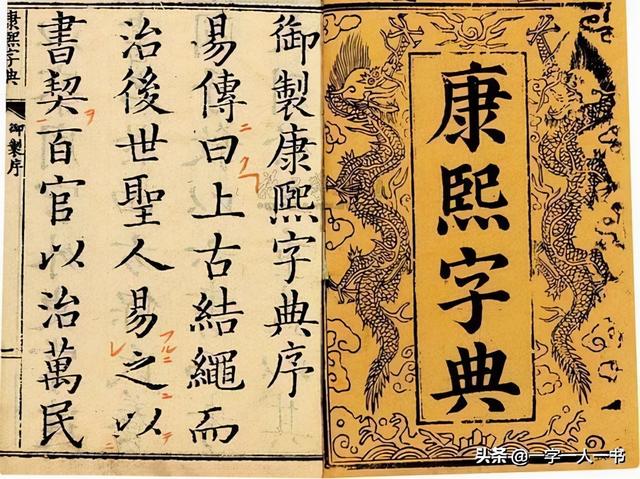 康熙字典
御製康熙字典序
易傳曰上古結繩而
治後世聖人易之以
書契百官以治萬民
康熙字典
御製序
头条 @一字一人一书